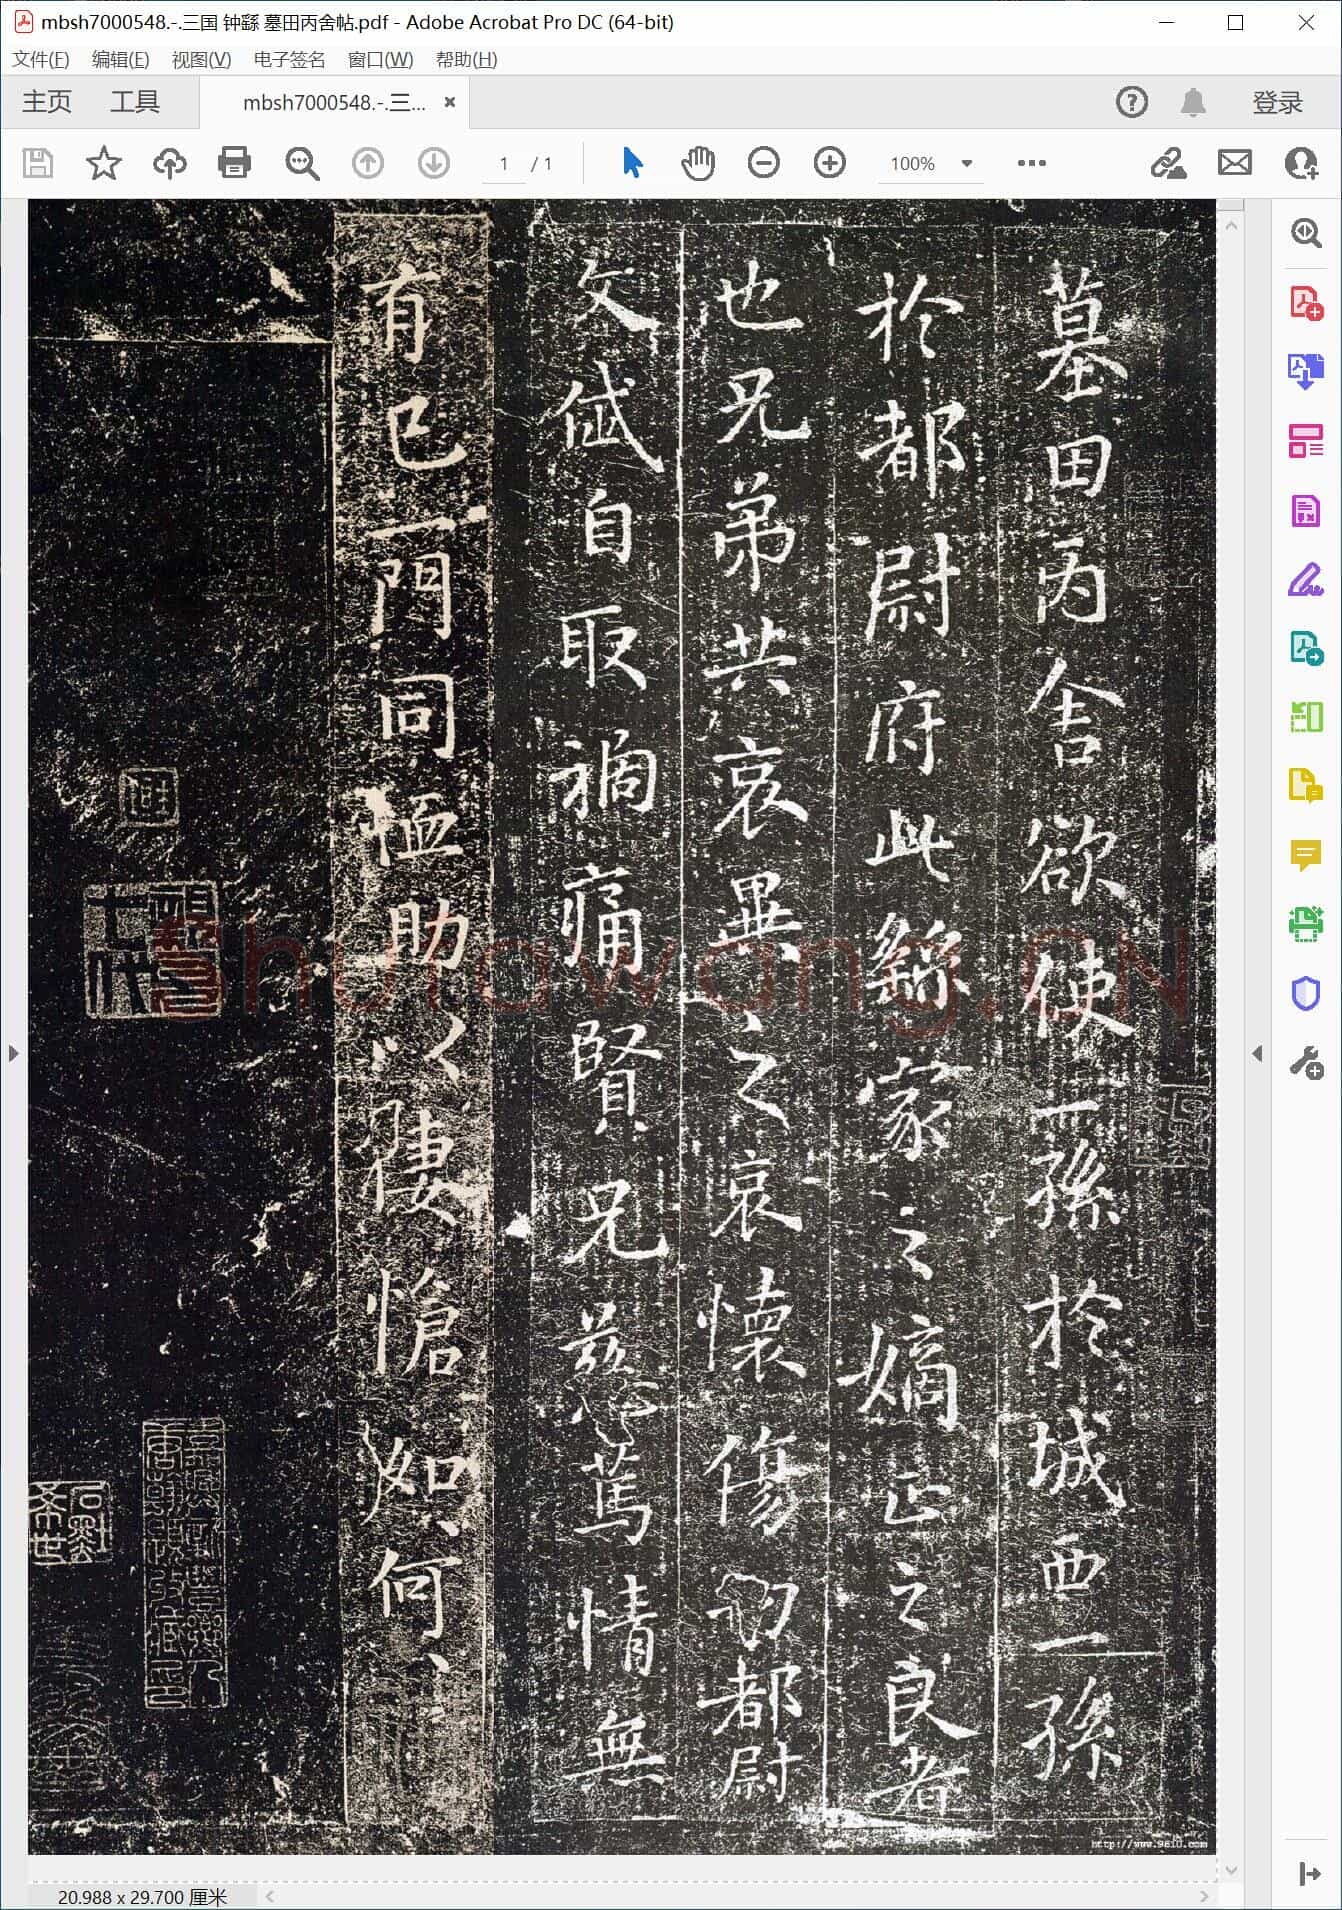 mbsh7000548.-.三国 钟繇 墓田丙舍帖.pdf - Adobe Acrobat Pro DC (64-bit)
文件(F) 编辑(E) 视图(V) 电子签名 窗口(W) 帮助(H)
主页 工具 mbsh7000548.-.三... × 登录
1 / 1 100%
墓田丙舍欲使一孫於城西一孫
於都尉府此繇家之嫡正之良者
也兄弟共哀異之哀懷傷切都尉
文岱自取禍痛賢兄慈篤情無
有已一門同恤助以悽愴如何、、
Shufawang.CN
http://www.9610.com
20.988 x 29.700 厘米